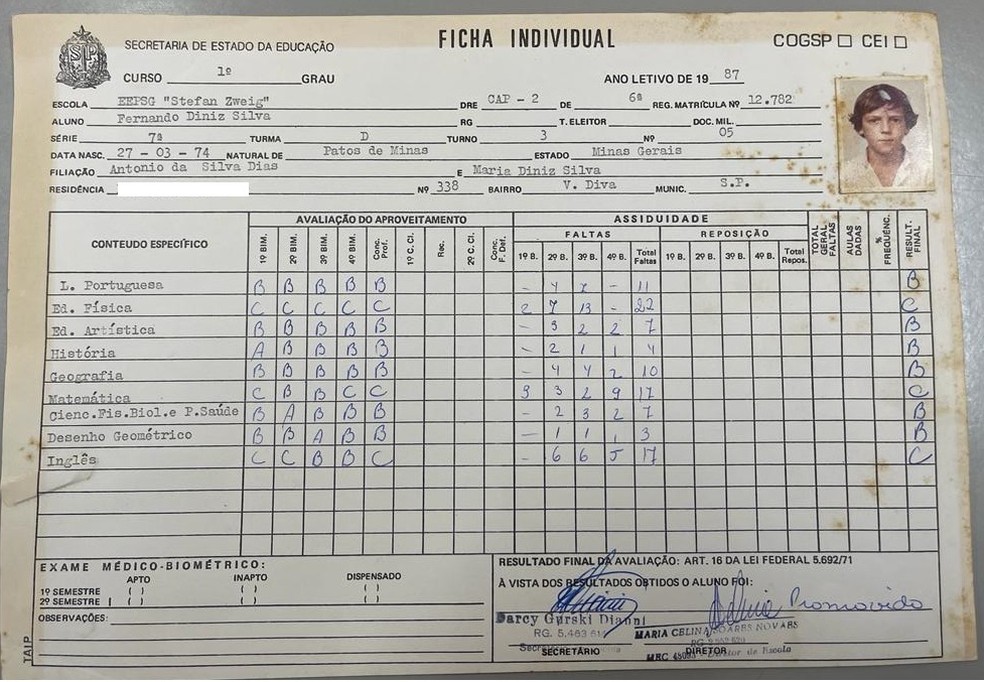 SECRETARIA DE ESTADO DA EDUCAÇÃO
FICHA INDIVIDUAL
COGSP CEI
CURSO 1º GRAU
ANO LETIVO DE 19 87
ESCOLA EEPSG "Stefan Zweig" DRE CAP - 2 DE 6ª REG. MATRÍCULA Nº 12.782
ALUNO Fernando Diniz Silva RG T. ELEITOR DOC. MIL.
SÉRIE 7ª TURMA D TURNO 3 Nº 05
DATA NASC. 27 - 03 - 74 NATURAL DE Patos de Minas ESTADO Minas Gerais
FILIAÇÃO Antonio da Silva Dias E Maria Diniz Silva
RESIDÊNCIA Nº 338 BAIRRO V. Diva MUNIC. S.P.
CONTEUDO ESPECÍFICO AVALIAÇÃO DO APROVEITAMENTO ASSIDUIDADE TOTAL GERAL FALTAS AULAS DADAS % FREQUÊNC. RESULT. FINAL
FALTAS REPOSIÇÃO
1º BIM. 2º BIM. 3º BIM. 4º BIM. Conc. Prof. 1º C. Cl. Rec. 2º C. Cl. Conc. F. Def. 1º B. 2º B. 3º B. 4º B. Total Faltas 1º B. 2º B. 3º B. 4º B. Total Repos.
L. Portuguesa B B B B B - 4 7 - 11 B
Ed. Física C C C C C 2 7 13 - 22 C
Ed. Artística B B B B B - 3 2 2 7 B
História A B B B B - 2 1 1 4 B
Geografia B B B B B - 4 4 2 10 B
Matemática C B B C C 3 3 2 9 17 C
Cienc.Fis.Biol.e P.Saúde B A B B B - 2 3 2 7 B
Desenho Geométrico B B A B B - 1 1 1 3 B
Inglês C C B B C - 6 6 5 17 C
EXAME MÉDICO-BIOMÉTRICO:
APTO INAPTO DISPENSADO
1º SEMESTRE ( ) ( ) ( )
2º SEMESTRE ( ) ( ) ( )
OBSERVAÇÕES:
RESULTADO FINAL DA AVALIAÇÃO: ART. 16 DA LEI FEDERAL 5.692/71
À VISTA DOS RESULTADOS OBTIDOS O ALUNO FOI:
Promovido
Darcy Gurski Dianni
RG. 5.463
SECRETÁRIO
MARIA CELINA SOARES NOVAES
DIRETOR
Diretor de Escola
TAIP